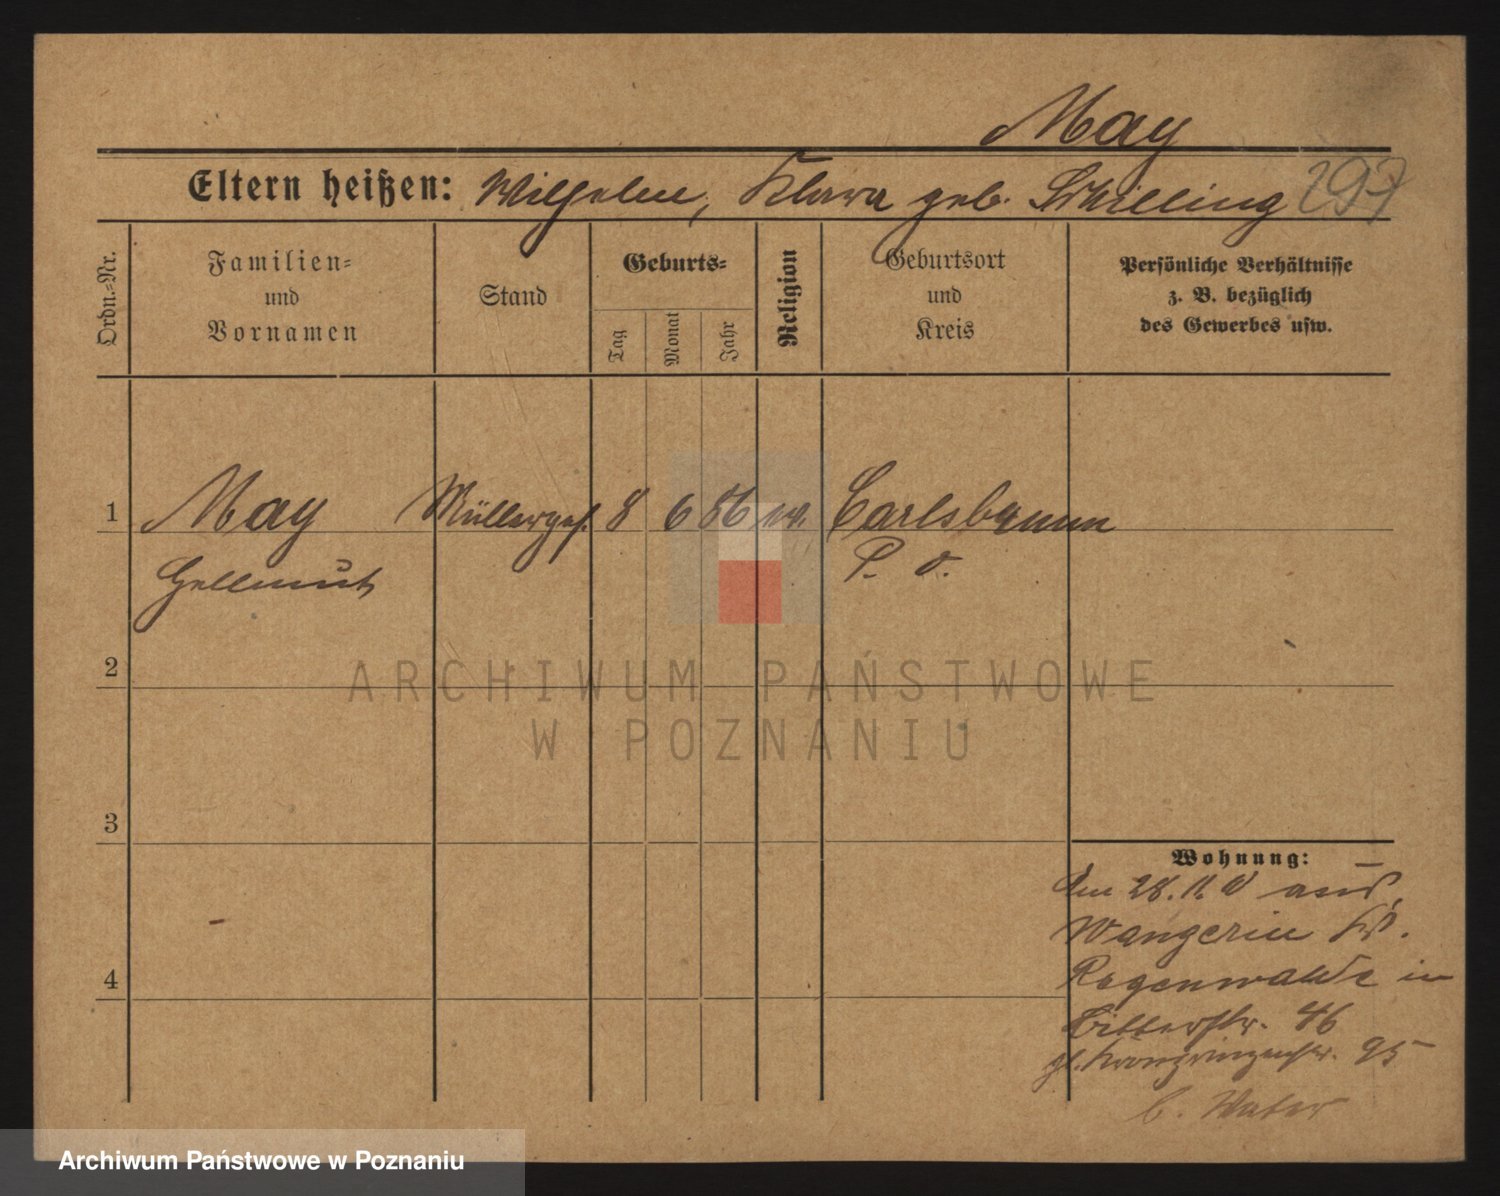 May
Eltern heißen: Wilhelm, Klara geb. Schilling 297
Ordn.-Nr.
Familien-
und
Vornamen
Stand
Geburts-
Tag
Monat
Jahr
Religion
Geburtsort
und
Kreis
Persönliche Verhältnisse
z. B. bezüglich
des Gewerbes usw.
1 May Müllerges. 8 6 86 ev. Carlsbaum
Hellmut P. O.
2
3
4
Wohnung:
Am 28. aus
Wangerin Kr.
Regenwalde in
Ritterstr. 46
Kronprinzenstr. 95
b. Vater
ARCHIWUM PAŃSTWOWE
W POZNANIU
Archiwum Państwowe w Poznaniu